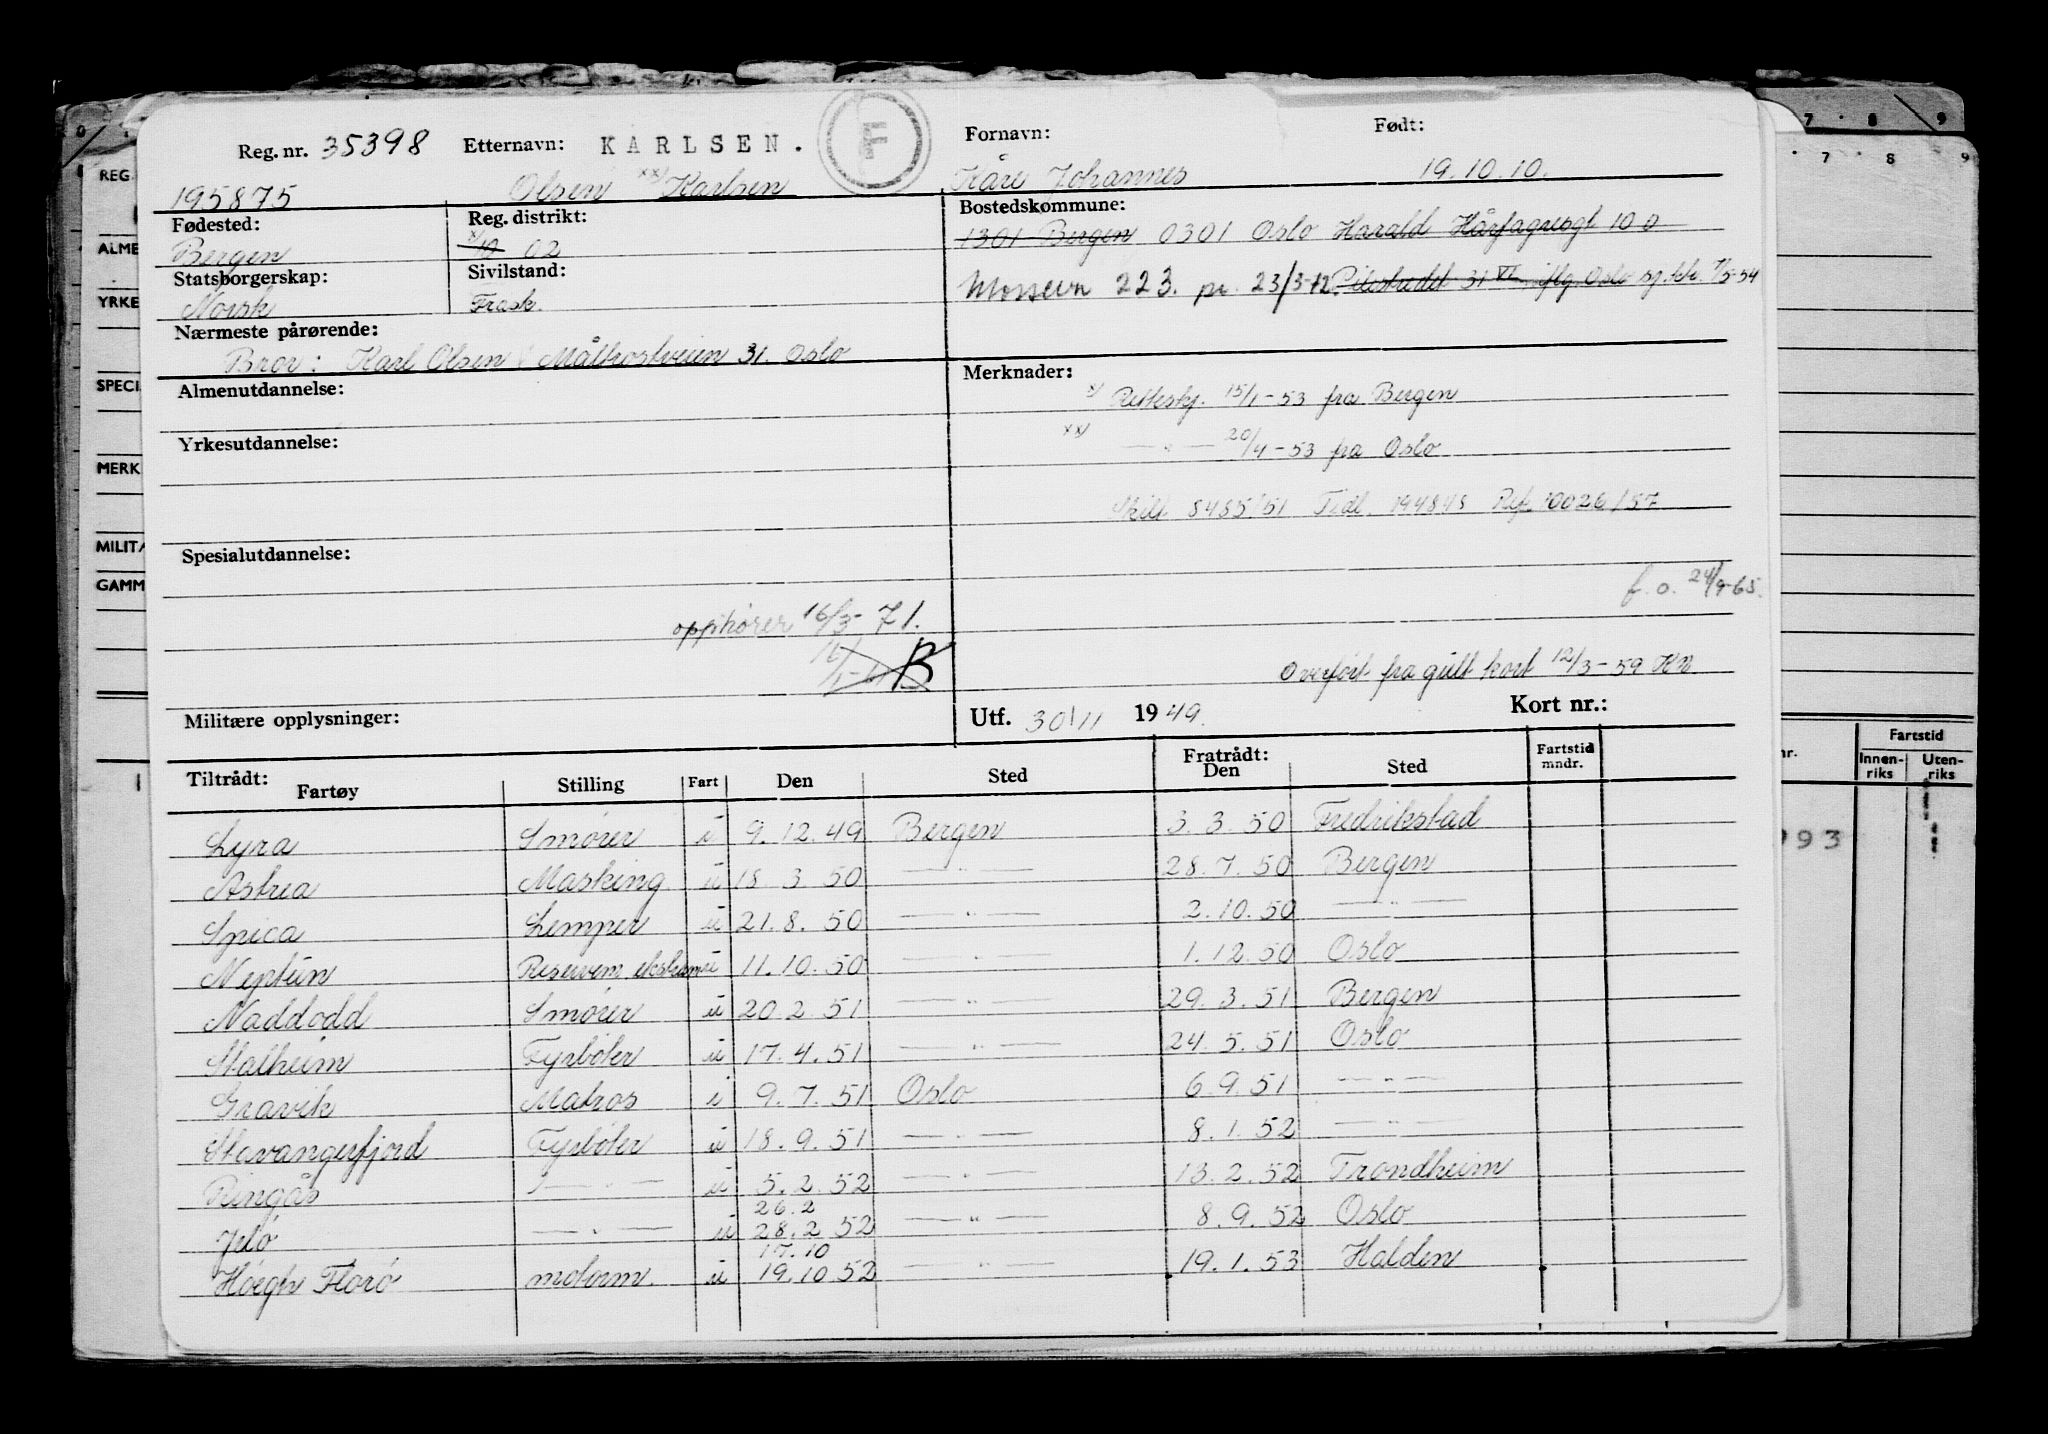 Reg. nr. 35398 Etternavn: KARLSEN. F Fornavn: Født:
195875 Olsen xx) Karlsen Kåre Johannes 19.10.10.
Fødested: Reg. distrikt: Bostedskommune:
Bergen x) 10 02 1301 Bergen 0301 Oslo Harald Hårfagresgt 10 0
Statsborgerskap: Sivilstand:
Norsk Frask. Mossevn 223. pr. 23/3-72. Pilestredet 31 VI iflg. Oslo
Nærmeste pårørende:
Bror: Karl Olsen Måltrostveien 31. Oslo
Almenutdannelse: Merknader:
x) Retteskj. 15/1-53 fra Bergen
Yrkesutdannelse:
xx) — " — 20/4-53 fra Oslo
8485/51 Tidl. 194848 Ref. 0026/57
Spesialutdannelse:
f.o. 24/9-65.
opphører 16/3-71.
B
Overført fra gult kort 12/3-59 KN
Militære opplysninger: Utf. 30/11 1949. Kort nr.:
Tiltrådt: Fratrådt:
Fartøy Stilling Fart Den Sted Den Sted Fartstid mndr.
Lyra Smører u 9.12.49 Bergen 3.3.50 Fredrikstad
Astrea Masking. u 18.3.50 — " — 28.7.50 Bergen
Spica Lemper u 21.8.50 — " — 2.10.50 — " —
Neptun Reservem. u 11.10.50 — " — 1.12.50 Oslo
Naddodd Smører u 20.2.51 — " — 29.3.51 Bergen
Stalheim Fyrbøter u 17.4.51 — " — 24.5.51 Oslo
Gravik Matros i 9.7.51 Oslo 6.9.51 — " —
Stavangerfjord Fyrbøter u 18.9.51 — " — 8.1.52 — " —
Ringås — " — u 5.2.52 — " — 13.2.52 Trondheim
26.2
Jelø — " — u 28.2.52 — " — 8.9.52 Oslo
17.10
Höegh Florø motorm. u 19.10.52 — " — 19.1.53 Halden
REG.
ALME
YRKE
SPECI
MERK
MILITÆ
GAMM
7 8 9
7 8 9
nr. Fartstid
Innen-riks Uten-riks
993